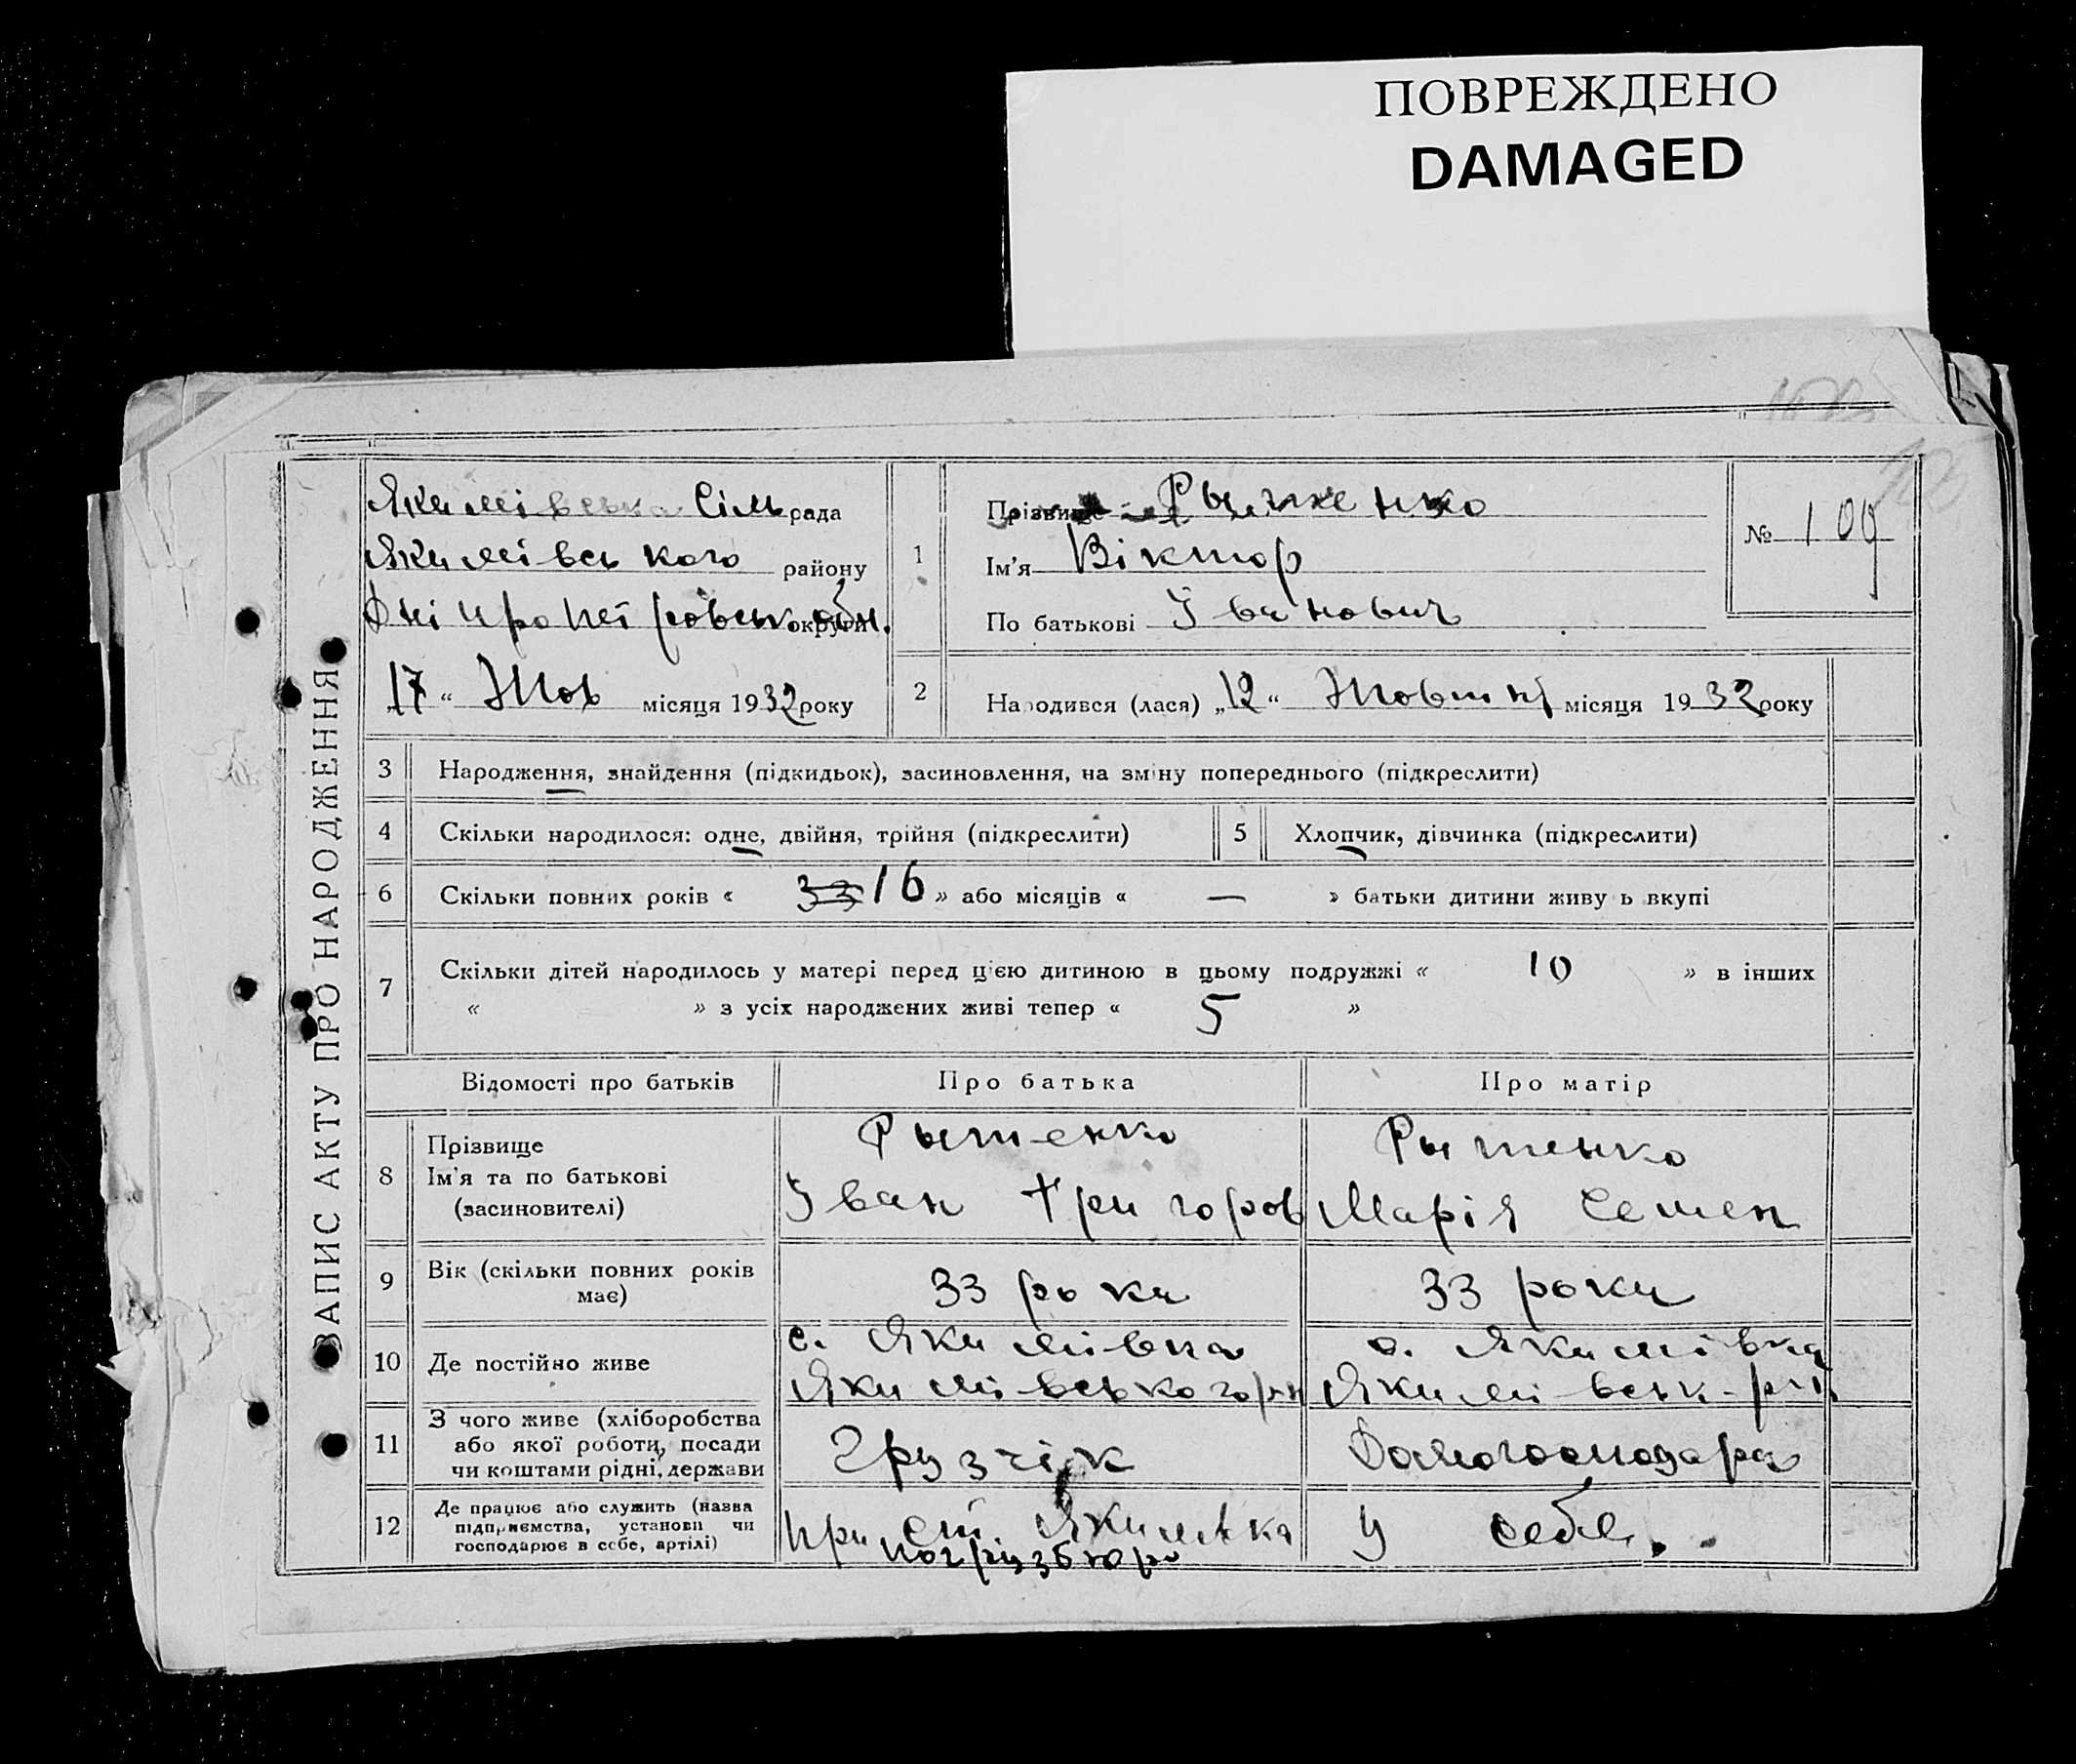 ПОВРЕЖДЕНО
DAMAGED
ЗАПИС АКТУ ПРО НАРОДЖЕННЯ
Якимівська Сіль рада
Якимівського району
Дніпропетровськ округи обл.
„17“ Жов місяця 1932 року
1
Прізвище
Ім'я Віктор
По батькові Іванович
№ 109
2 Народився (лася) „12“ Жовтня місяця 1932 року
3 Народження, знайдення (підкидьок), засиновлення, на зміну попереднього (підкреслити)
4 Скільки народилося: одне, двійня, трійня (підкреслити) 5 Хлопчик, дівчинка (підкреслити)
6 Скільки повних років « 33 16 » або місяців « — » батьки дитини живу ь вкупі
7 Скільки дітей народилось у матері перед цією дитиною в цьому подружжі « 10 » в інших
« » з усіх народжених живі тепер « 5 »
Відомості про батьків Про батька Про матір
8 Прізвище
Ім'я та по батькові
(засиновителі)
Іван Григоров
Марія Семен
9 Вік (скільки повних років
має)
33 роки
33 роки
10 Де постійно живе
с. Якимівка
Якимівського рн
с. Якимівка
Якимівськ. р-н
11 З чого живе (хліборобства
або якої роботи, посади
чи коштами рідні, держави
Грузчік
Домогосподарка
12 Де працює або служить (назва
підприємства, установи чи
господарює в себе, артілі)
при ст. Якимівка
погрузбюро
У себе.